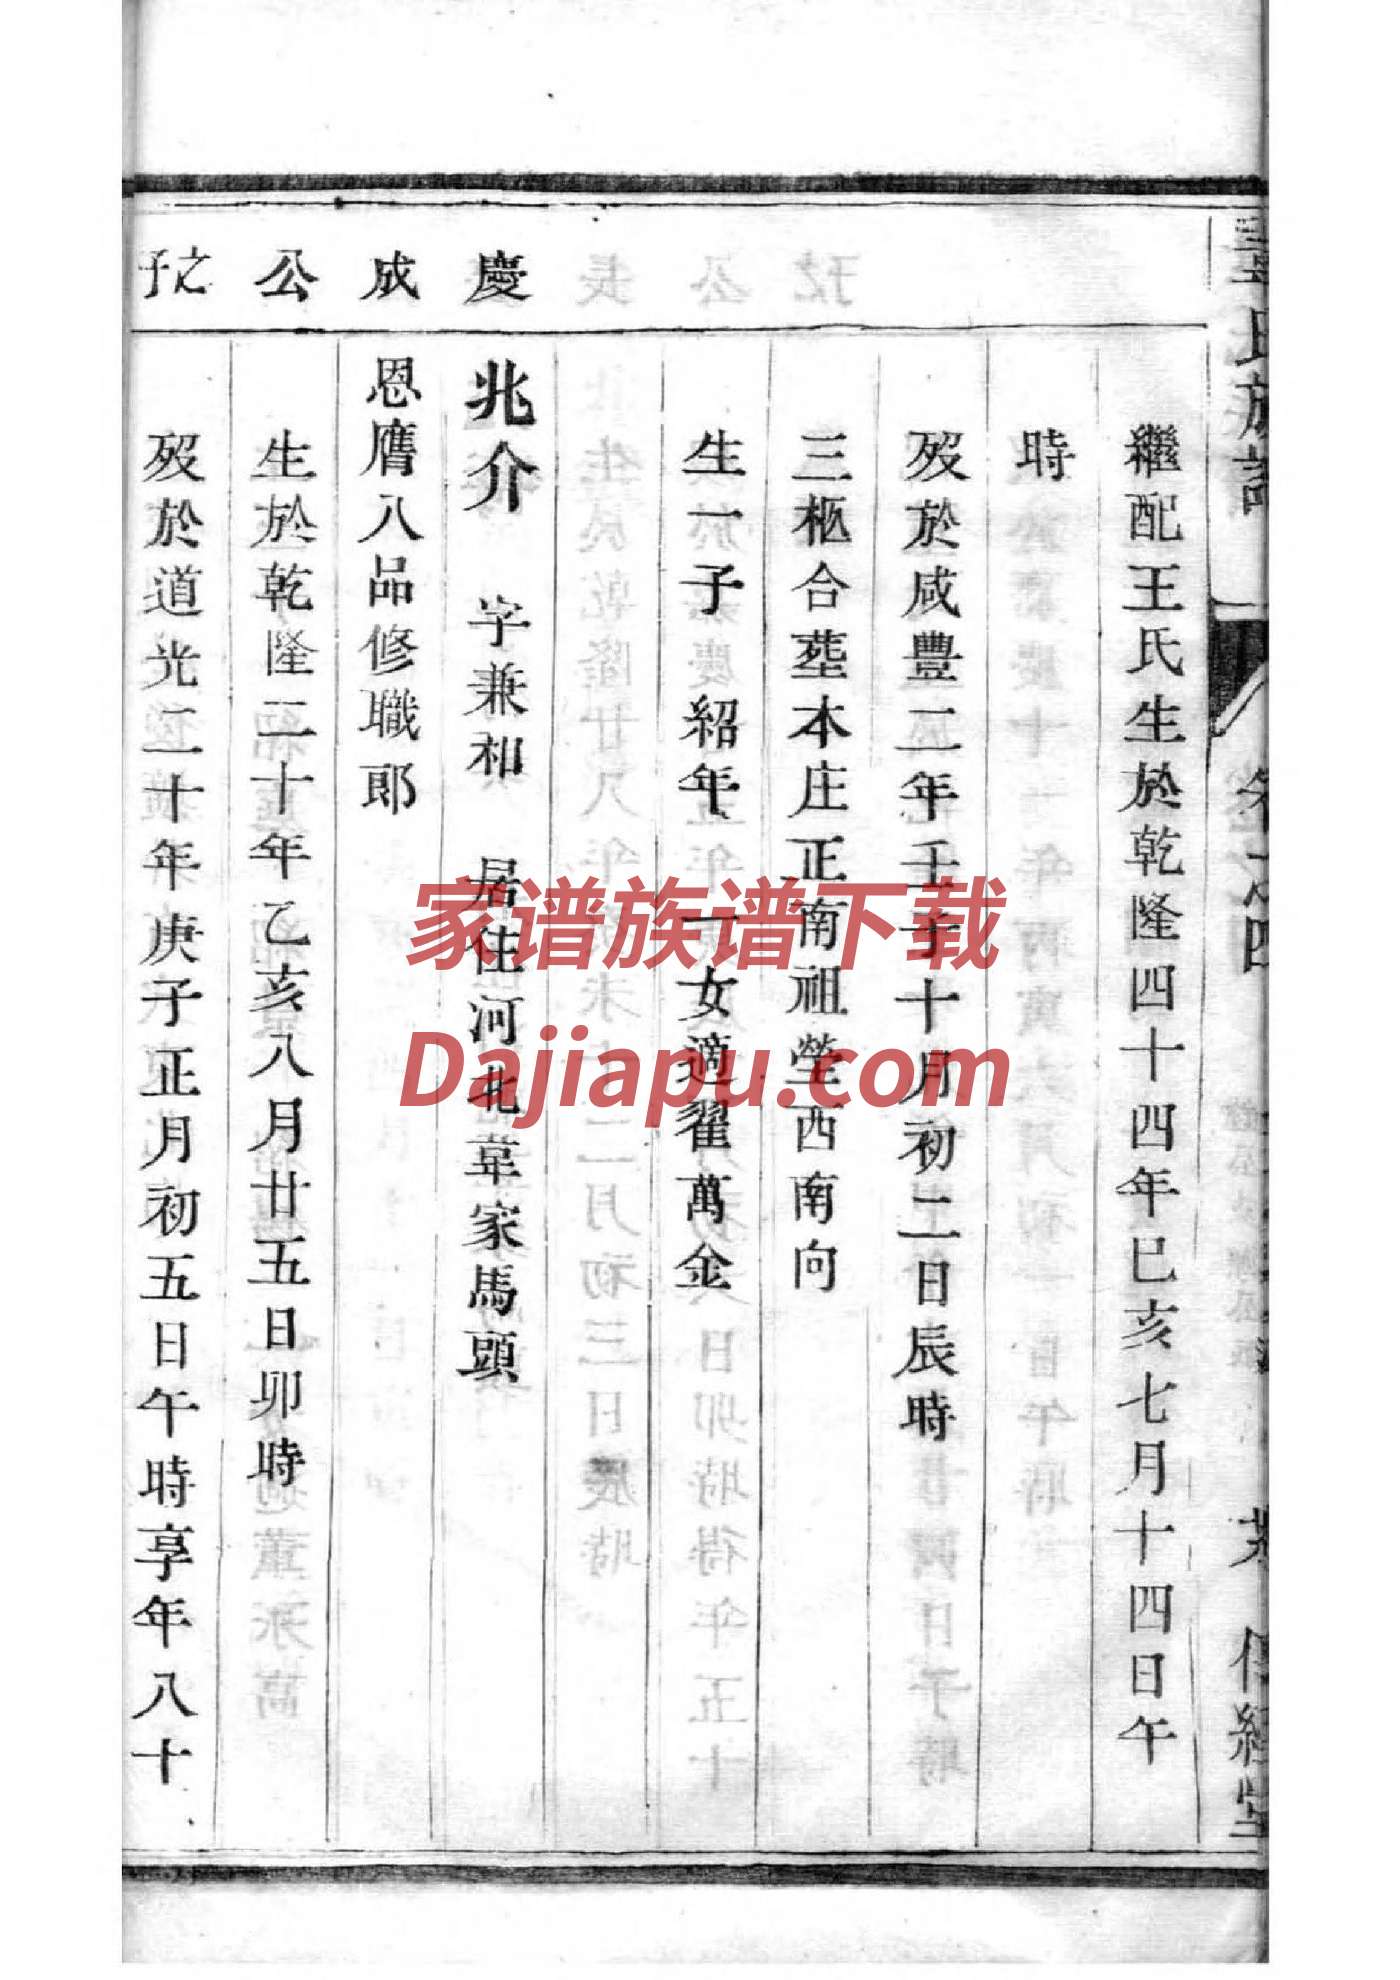 氏族譜
卷之四
傳經堂
繼配王氏生於乾隆四十四年巳亥七月十四日午
時
歿於咸豐二年壬子十月初二日辰時
三柩合塟本庄正南祖塋西南向
生一子 紹年 一女適翟萬金
慶 成 公 之子
兆介 字兼和 居住河北辜家馬頭
恩膺八品修職郎
生於乾隆二十年乙亥八月廿五日卯時
歿於道光二十年庚子正月初五日午時享年八十
家谱族谱下载
Dajiapu.com